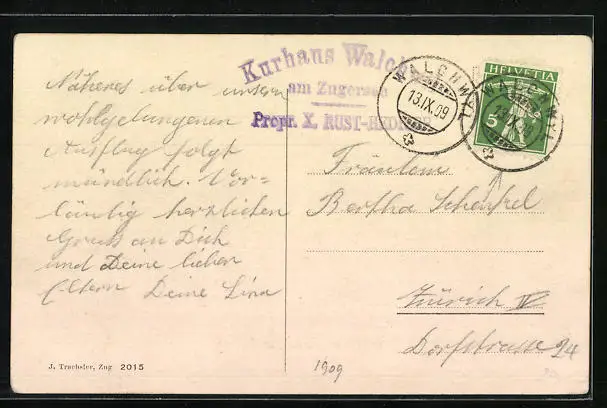 Näheres über unsern
wohlgelungenen
Ausflug folgt
mündlich. Vor-
läufig herzlichen
Gruss an Dich
und Deine lieben
Eltern Deine Lina
Kurhaus Walch
am Zugersee
Propr. X. RUST-
WALCHWYL
13.IX.09
HELVETIA
5
WALCHWYL
IX.09
Fräulein
Bertha Schenkel
Zürich IV
Dorfstrasse 24
J. Trachsler, Zug 2015
1909